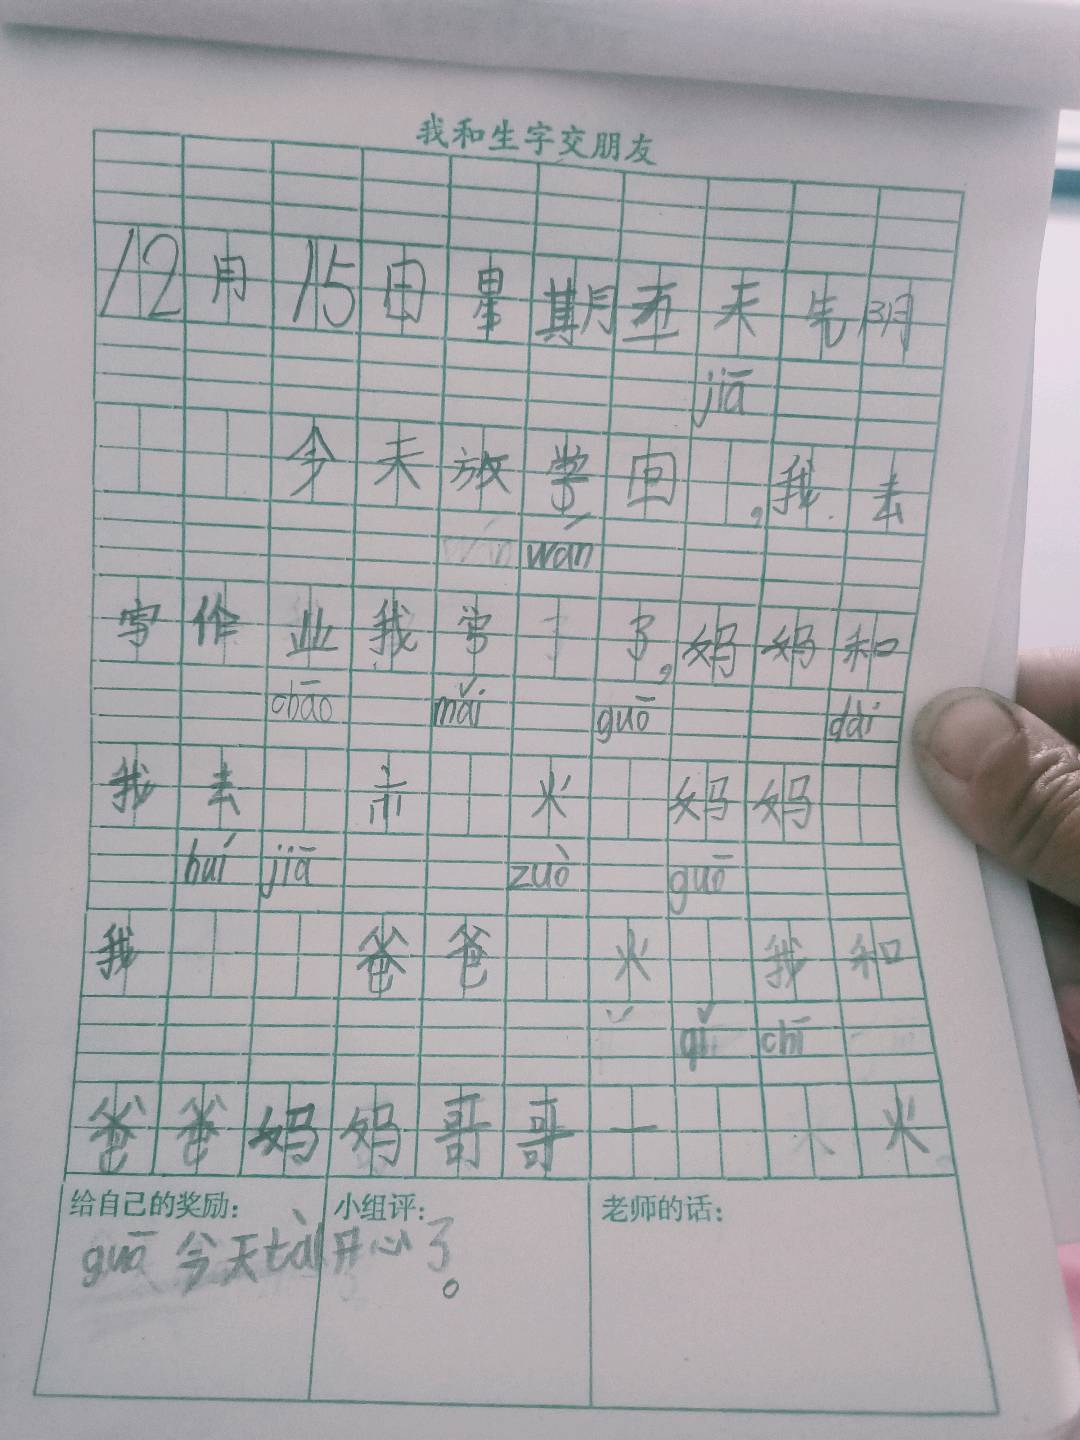 我和生字交朋友
12月15日星期五天气阴
jiā
今天放学回,我去
wán
写作业我写了,妈妈和
chāo mǎi guō dài
我去市火妈妈
huí jiā zuò guō
我爸爸火我和
qǐ chī
爸爸妈妈哥哥一火
给自己的奖励: 小组评: 老师的话:
guō 今天tài开心了。